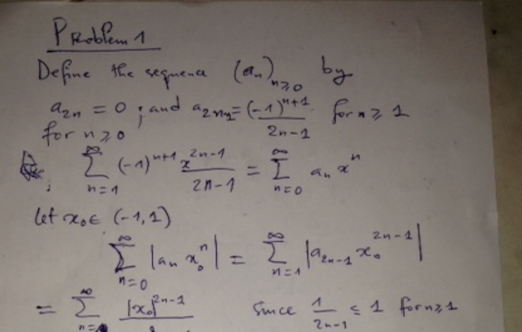 Problem 1
Define the sequence (aₙ)ₙ≥₀ by
a₂ₙ = 0 ; and a₂ₙ₋₁ = (-1)ⁿ⁺¹ / 2n-1 for n ≥ 1
for n ≥ 0
∞∑n=1 (-1)ⁿ⁺¹ x²ⁿ⁻¹ / 2n-1 = ∞∑n=0 aₙ xⁿ
let x₀ ∈ (-1,1)
∞∑n=0 |aₙ x₀ⁿ| = ∞∑n=1 |a₂ₙ₋₁ x₀²ⁿ⁻¹|
= ∞∑n= |x₀|²ⁿ⁻¹ since 1 / 2n-1 ≤ 1 for n≥1